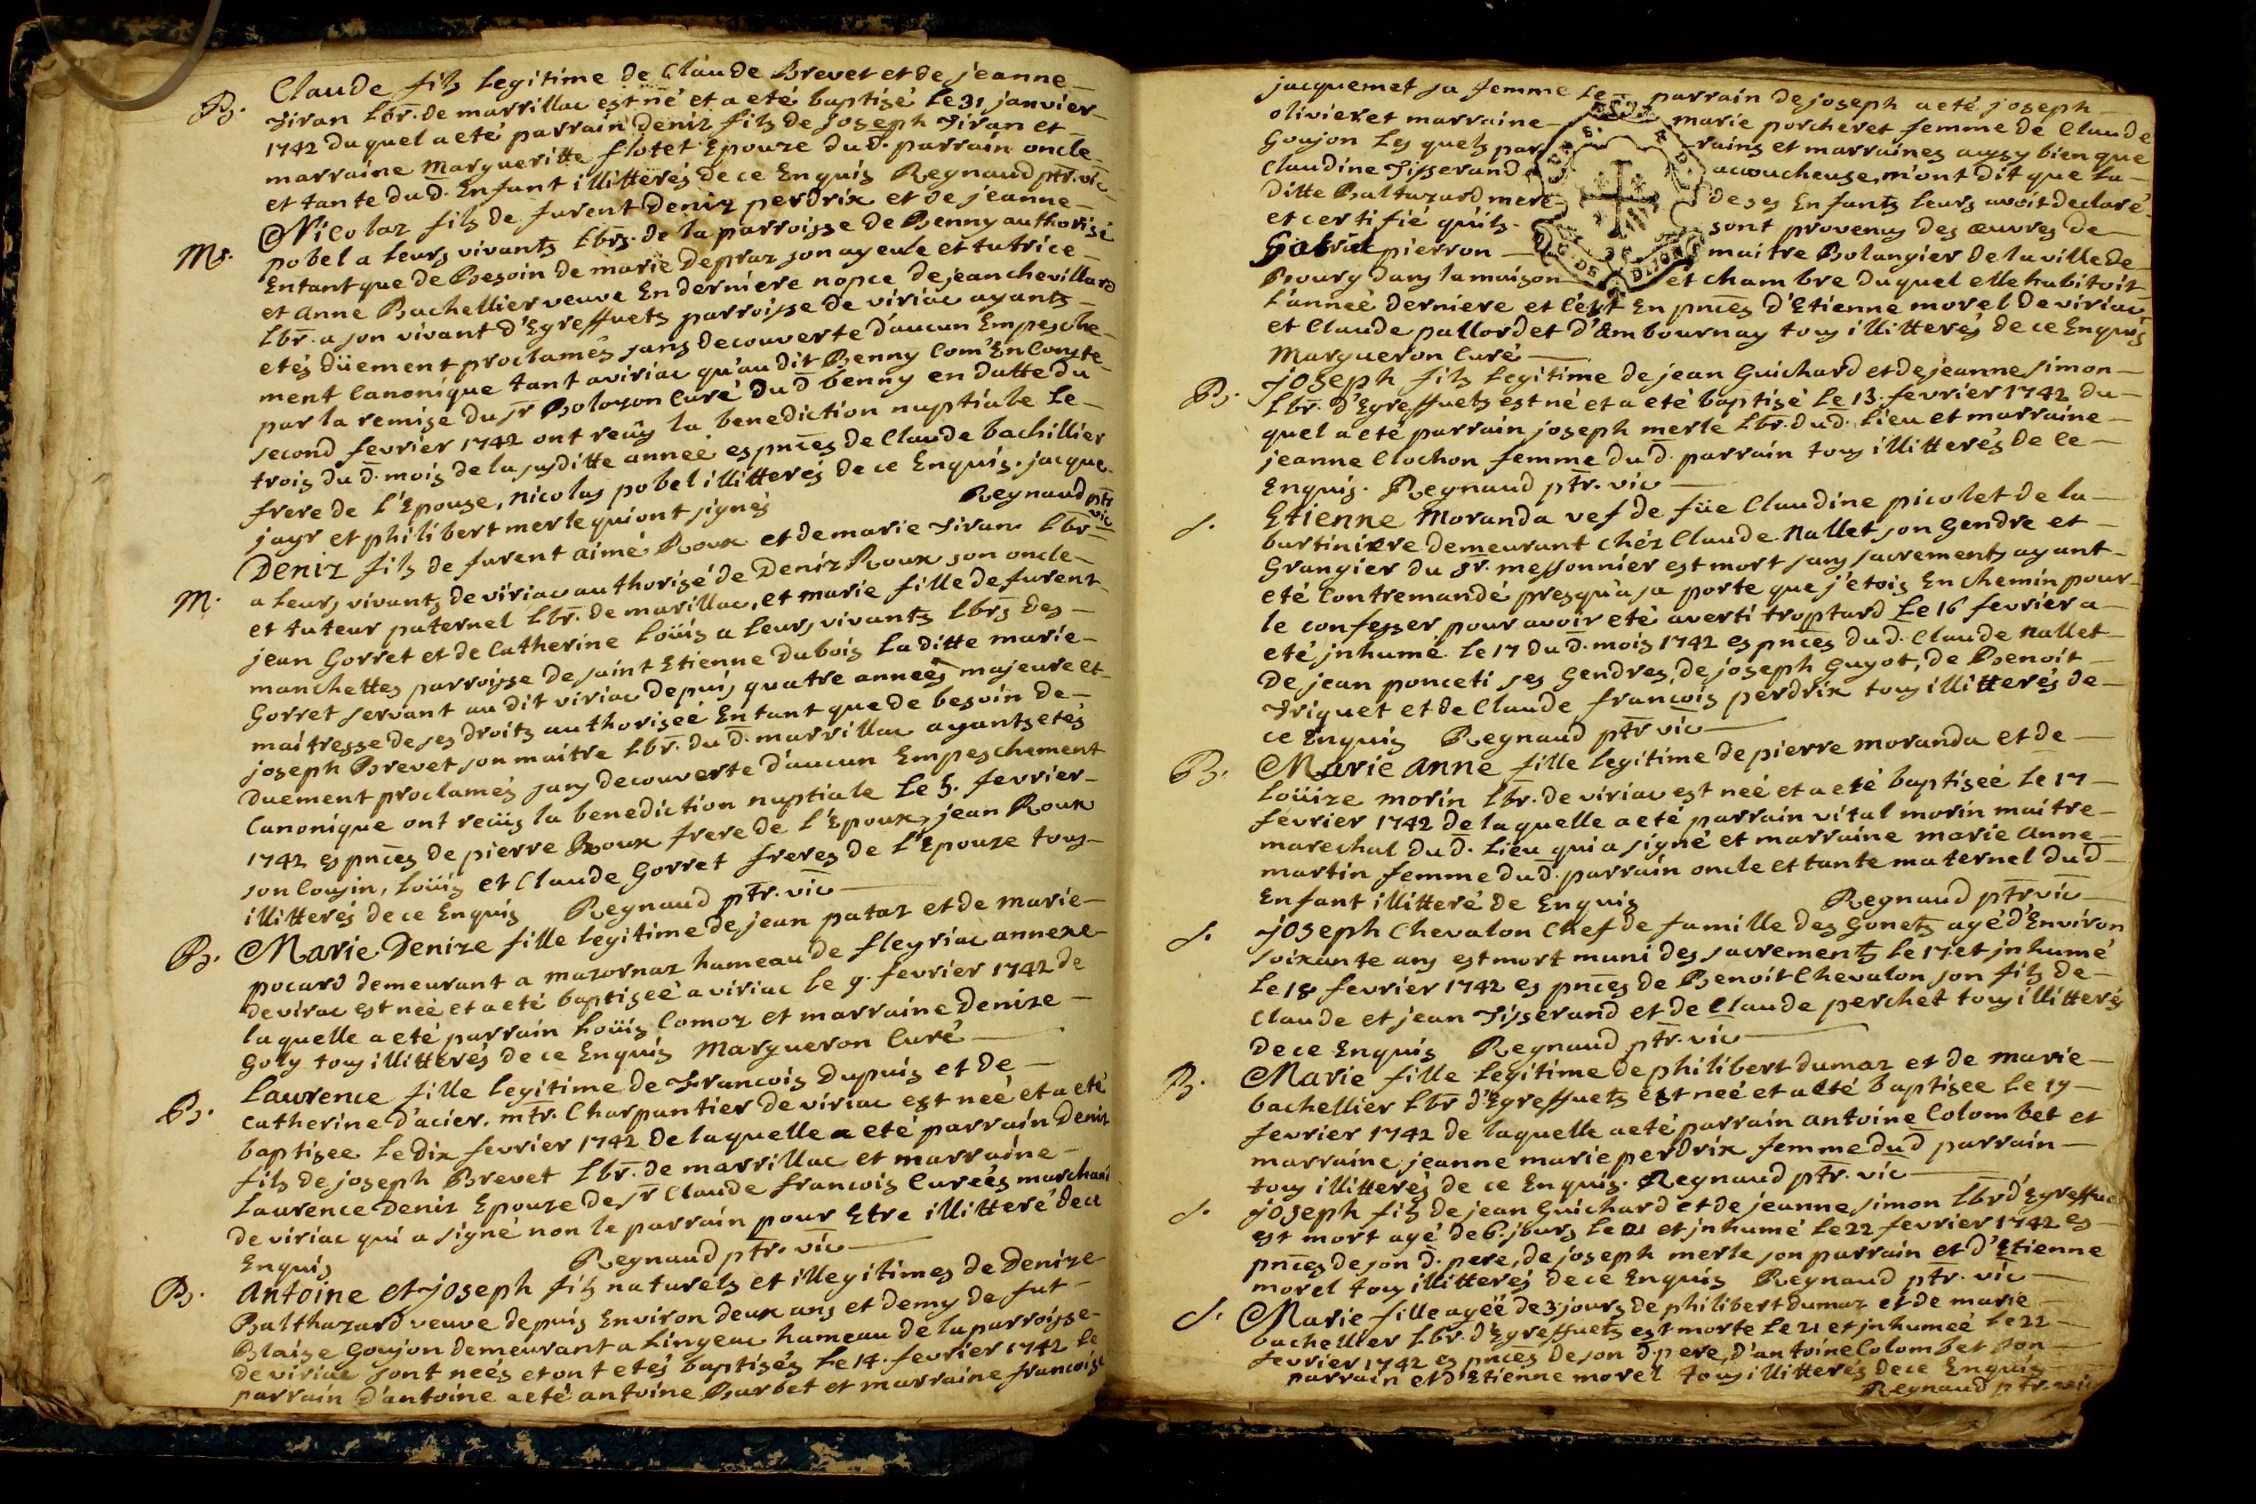 B. Claude fils legitime de Claude Brevet et de jeanne
Tiran lbr. de marrillac est né et a eté baptisé le 31 janvier
1742 duquel a eté parrain deniz fils de joseph Tiran et
marraine margueritte flotet Epouze du d. parrain oncle
et tante du d. Enfant illitterés de ce Enquis Regnaud ptr. vic
Ms. Nicolaz fils de furent Deniz perdrix et de jeanne
pobel a leurs vivants lbrs. de la parroisse de Benny authorisé
Entant que de Besoin de marie Depraz son ayeule et tutrice
et anne Bachellier veuve En derniere nopce de jean chevillard
lbr. a son vivant d'Egreffuets parroisse de viriac ayants
etés düement proclamés sans decouverte d'aucun Empesche-
ment Canonique tant a viriac qu'au dit Benny Com'En Conste
par la remise du sr Boloyon Curé du d benny en datte du
second fevrier 1742 ont reçüs la benediction nuptiale le
trois du d. mois de la susditte annee es pnces de Claude bachillier
frere de l'Epouse, nicolas pobel illitterés de ce Enquis. jacque
jayr et philibert merle qui ont signés Regnaud ptr vic
M. Deniz fils de furent aimé Roux et de marie Tiran lbr
a leurs vivants de viriac authorisé de Deniz Roux son oncle
et tuteur paternel lbr. de marillac, et marie fille de furent
jean Gorret et de Catherine loüis a leurs vivants lbrs des
manchettes parroisse de saint Etienne dubois la ditte marie
Gorret servant au dit viriac depuis quatre années majeure et
maitresse de ses droits authoriseé Entant que de besoin de
joseph Brevet son maitre lbr. du d. marrillac ayants etés
Duement proclamés sans decouverte d'aucun Empeschement
Canonique ont recüs la benediction nuptiale le 5. fevrier
1742 es pnces de pierre Roux frere de l'Epoux, jean Roux
son Cousin, loüis et Claude Gorret freres de l'Epouze tous
illitterés de ce Enquis Regnaud ptr. vic
B. Marie Denize fille legitime de jean pataz et de marie
pocard demeurant a mazornaz hameau de fleyriac annexe
de virac est neé et a eté baptiseé a viriac le 9. fevrier 1742 de
laquelle a eté parrain loüis Comoz et marraine Denize
Goly tous illitterés de ce Enquis Margueron Curé
B. Laurence fille legitime de Francois Dupuis et de
Catherine D'acier. mtr. Charpantier de viriac est neé et a eté
baptisee le dix fevrier 1742 de laquelle a eté parrain Deniz
fils de joseph Brevet lbr. de marrillac et marraine
Laurence Deniz Epouze de sr Claude francois Cureés marchand
de viriac qui a signé non le parrain pour Etre illitteré de ce
Enquis Regnaud ptr. vic
B. Antoine et joseph fils naturels et illegitimes de Denize
Balthazard veuve depuis Environ deux ans et demy de fut
Blaise Goujon demeurant a Lingeac hameau de la parroisse
de viriac sont neés et ont etés baptisés le 14. fevrier 1742 le
parrain d'antoine a eté antoine Barbet et marraine francoise
jacquemet sa femme le parrain de joseph a eté joseph
olivier et marraine marie porcheret femme de Claude
Goujon les quels par rains et marraines aussy bien que
Claudine Tisserand accoucheuse, m'ont dit que la
ditte Baltazard mere de ses Enfants leurs avoit declaré
et certifié qu'ils sont provenus des œuvres de
Gabriel pierron maitre Bolangier de la ville de
Bourg dans la maison et chambre duquel elle habitoit
l'anneé derniere et c'est En pnces d'Etienne morel de viriac
et Claude pallordet d'Ambournay tous illitterés de ce Enquis
Margueron Curé
B. joseph fils legitime de jean Guichard et de jeanne simon
lbr. d'Egreffuets est né et a eté baptisé le 13. fevrier 1742 du
quel a eté parrain joseph merle lbr. du d. lieu et marraine
jeanne Clochon femme du d. parrain tous illitterés de ce
Enquis. Regnaud ptr. vic
S. Etienne Moranda vef de füe Claudine picolet de la
bartiniere demeurant chéz Claude nallet son gendre et
Grangier du sr. messonnier est mort sans sacrements ayant
eté Contremandé presqu'a sa porte que j'étois En chemin pour
le confesser pour avoir eté averti trop tard le 16 fevrier a
eté jnhumé le 17 du d. mois 1742 es pnces du d. Claude nallet
De jean ponceti ses gendres, de joseph Guyot, de Benoit
Triquet et de Claude francois perdrix tous illitterés de
ce Enquis Regnaud ptr vic
B. Marie anne fille legitime de pierre moranda et de
Loüize morin lbr. de viriac est neé et a eté baptiseé le 17
fevrier 1742 de laquelle a eté parrain vital morin maitre
marechal du d. lieu qui a signé et marraine marie anne
martin femme du d. parrain oncle et tante maternel du d
Enfant illitteré de Enquis Regnaud ptr vic
S. joseph Chevalon Chef de famille des Gonets agé d'Environ
soixante ans est mort muni des sacrements le 17 et jnhumé
le 18 fevrier 1742 es pnces de Benoit Chevalon son fils de
Claude et jean Tisserand et de Claude perchet tous illitterés
de ce Enquis Regnaud ptr. vic
B. Marie fille legitime de philibert dumaz et de marie
bachellier lbr d'Egreffuets est neé et a eté baptisee le 19
fevrier 1742 de laquelle a eté parrain antoine Colombet et
marraine jeanne marie perdrix femme du d parrain
tous illitterés de ce Enquis. Regnaud ptr. vic
S. joseph fils de jean Guichard et de jeanne simon lbr d'Egreffuets
est mort agé de 6. jours le 21 et jnhumé le 22 fevrier 1742 es
pnces de son d. pere, de joseph merle son parrain et d'Etienne
morel tous illitterés de ce Enquis Regnaud ptr. vic
S. Marie fille ageé de 3 jours de philibert dumaz et de marie
bachellier lbr. d'Egreffuets est morte le 21 et jnhumeé le 22
fevrier 1742 es pnces de son d. pere, d'antoine Colombet son
parrain et d'Etienne morel tous illitterés de ce Enquis
Regnaud ptr. vic